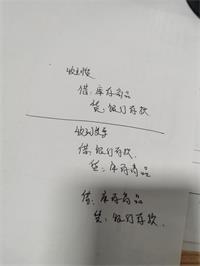 收到货
借：库存商品
贷：银行存款
收到发票
借：银行存款
贷：库存商品
借：库存商品
贷：银行存款